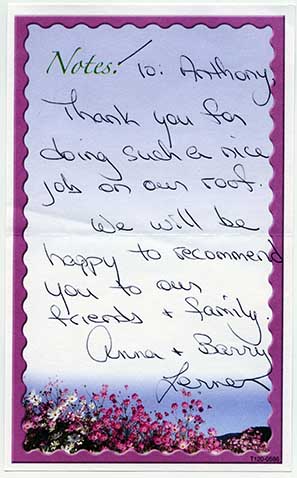 Notes: To: Anthony,
Thank you for
doing such a nice
job on our roof.
We will be
happy to recommend
you to our
friends + family.
Anna + Barry
Lerner
T120-0586